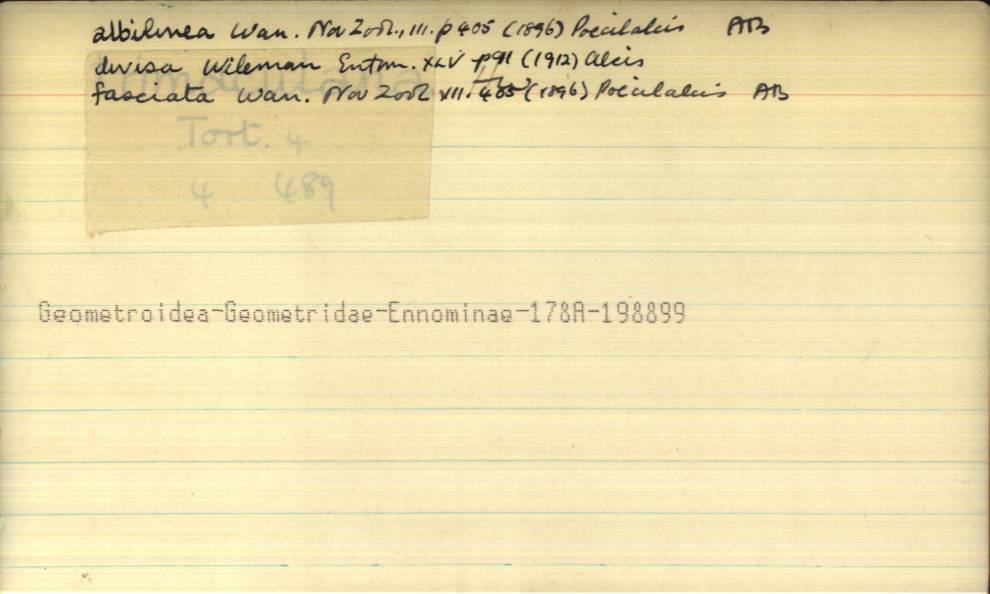 albilinea Warr. Nov Zool., III. p 405 (1896) Poecilalcis AB
divisa Wileman Entom. XLV p91 (1912) Alcis
fasciata Warr. Nov Zool III. 405 (1896) Poecilalcis AB
Tort. 4
4 489
Geometroidea-Geometridae-Ennominae-178A-198899